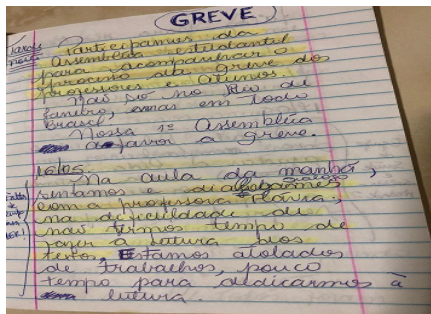 GREVE
Participamos da
Assembleia estudantil
para acompanhar o
processo da greve dos
professores e alunos.
Não só no Rio de
Janeiro, mas em todo
Brasil.
Nossa 1ª Assembleia
a favor a greve.
Na aula da manhã,
sentamos e dialogamos
com a professora
na dificuldade de
não termos tempo de
fazer a leitura dos
textos. Estamos atolados
de trabalhos, pouco
tempo para dedicarmos à
leitura.